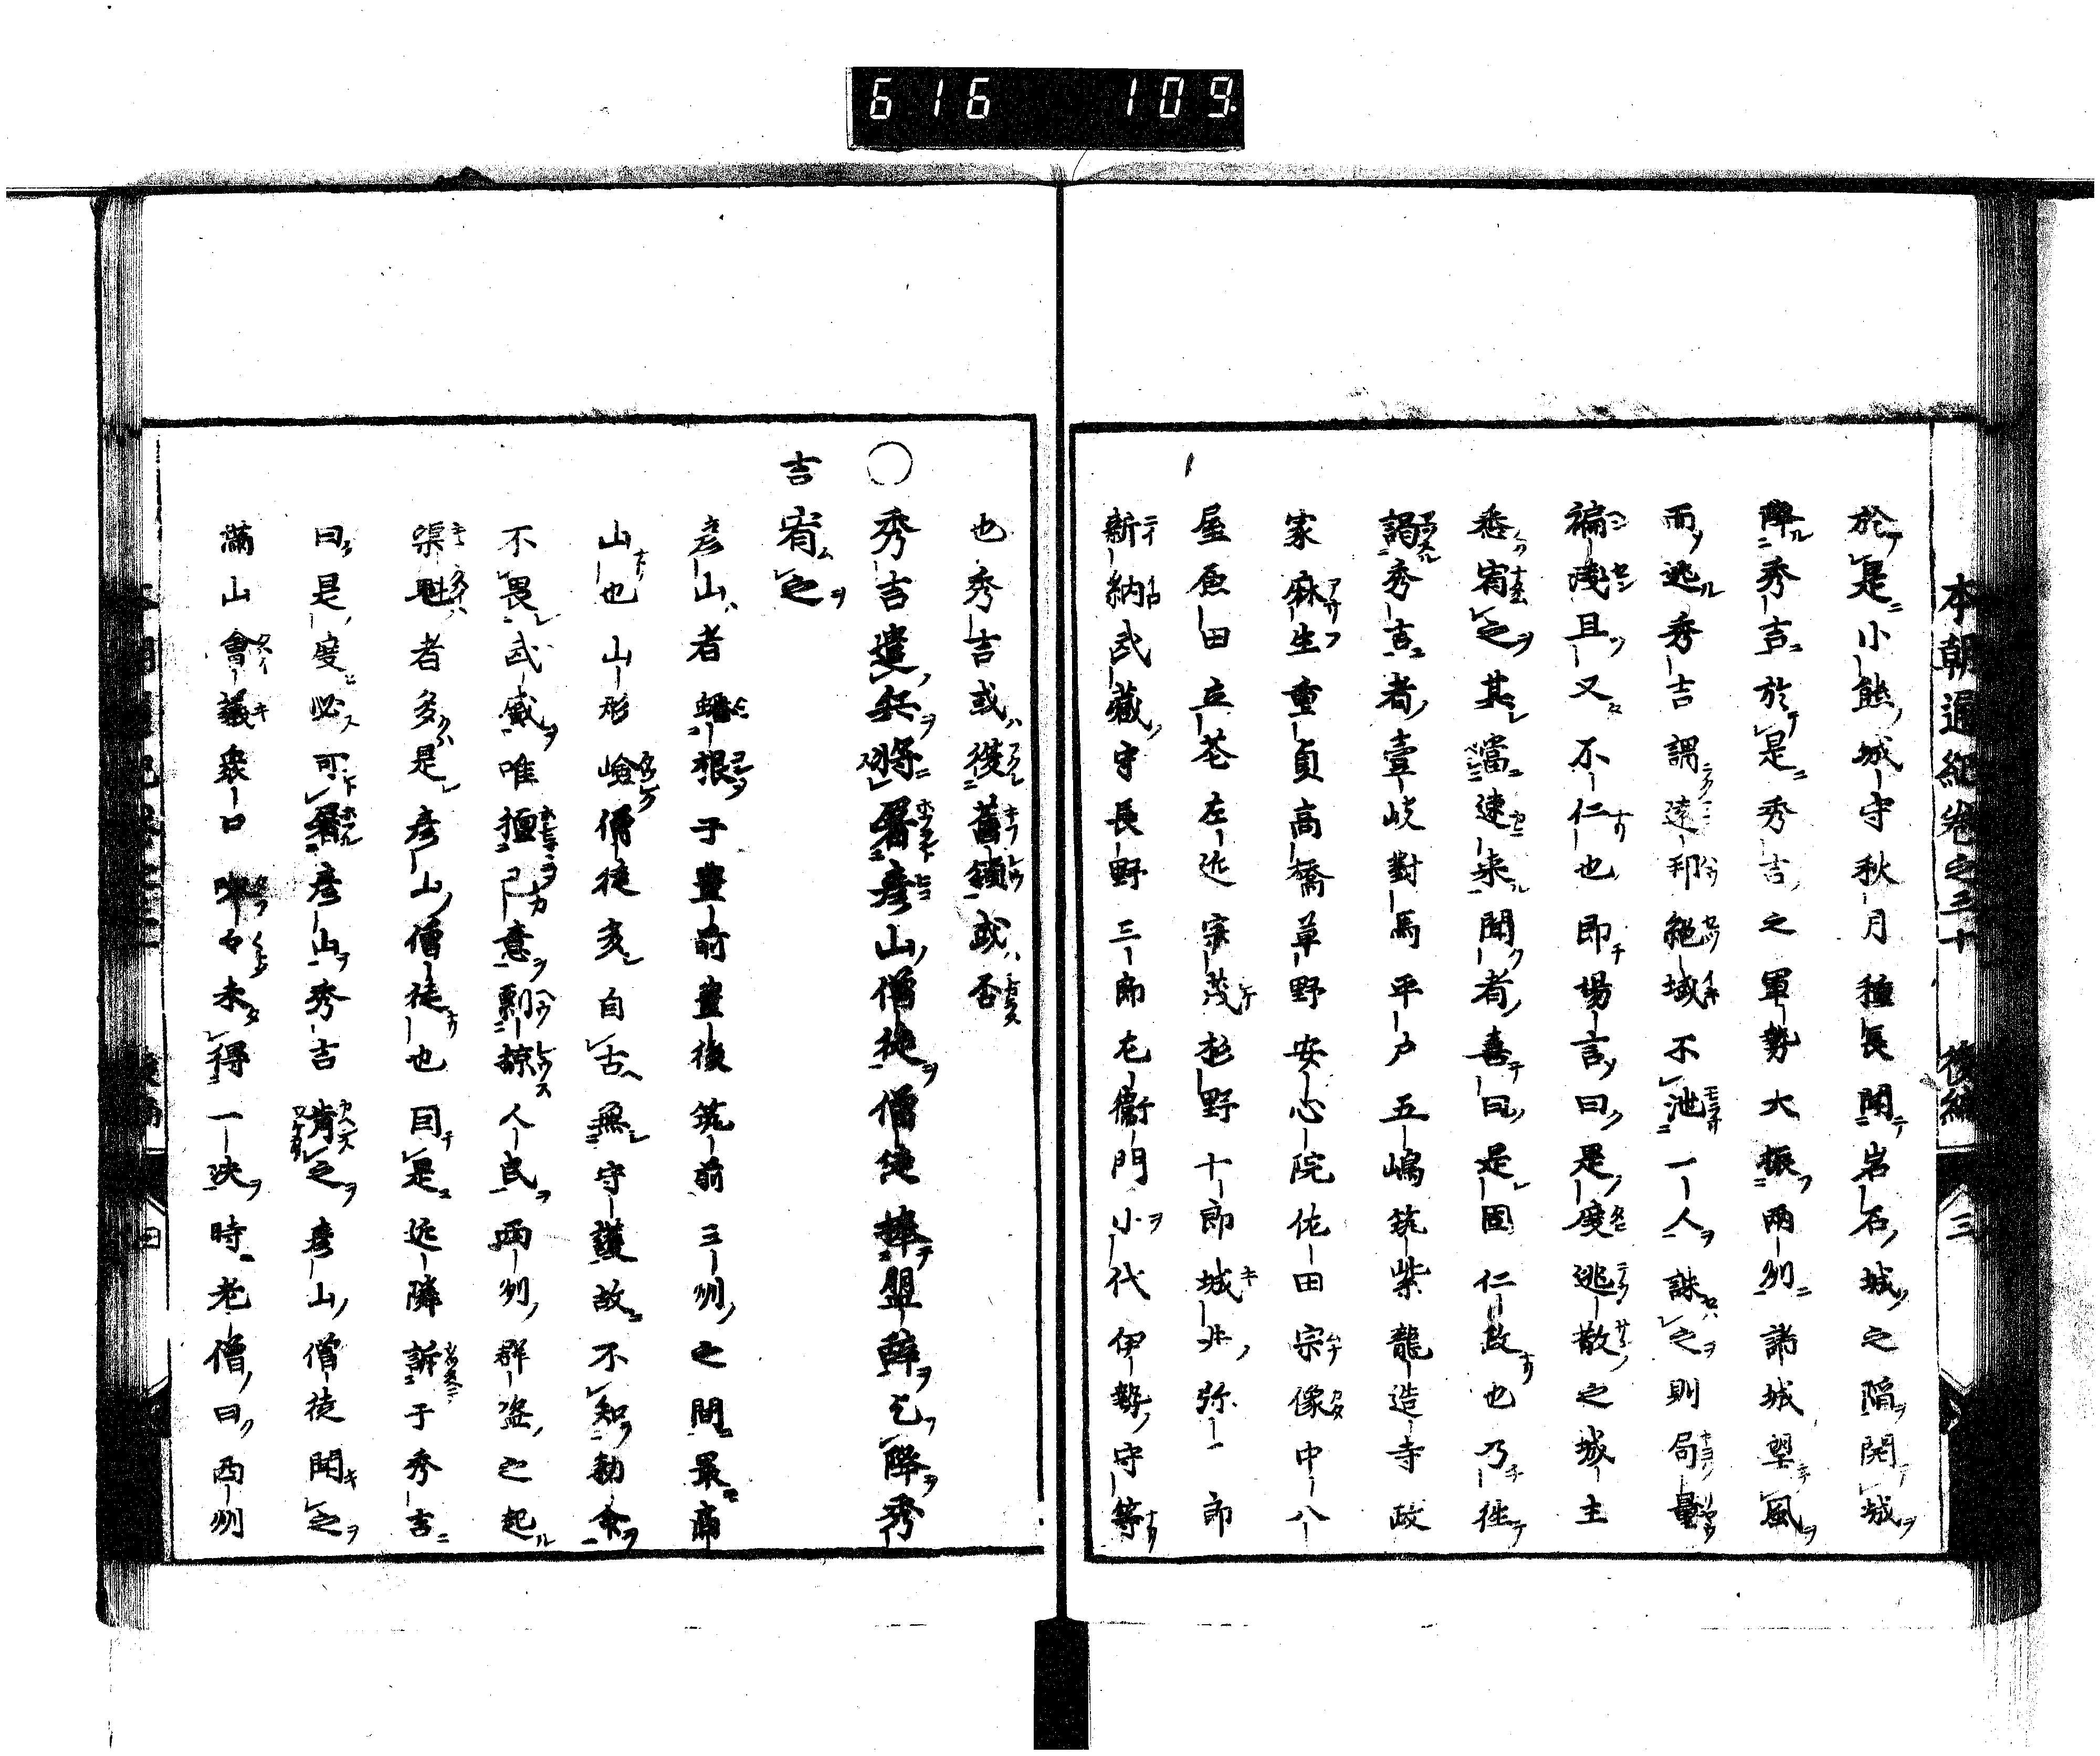 616 109
本朝通紀卷之三十 後編 三
於是小熊城守秋月種長聞岩石城之陷開城
降秀吉於是秀吉之軍勢大振兩州諸城望風
而逃秀吉謂遠邦絕域不池一人誅之則局量
褊淺且又不仁也即場言曰是度逃散之城主
悉宥之其當速来聞者喜曰是固仁政也乃往
謁秀吉者壹岐對馬平戸五嶋筑柴龍造寺政
家麻生重貞高橋草野安心院佐田宗像中八
屋原田立花左近宗茂杉野十郎城井弥一郎
新納武藏守長野三郎左衞門小代伊勢守等
也秀吉或復舊領或否
○秀吉遣兵將屠彥山僧徒僧徒捧盟辭乞降秀
吉宥之
彥山者蟠根于豊前豊後筑前三州之間最高
山也山形嶮僧徒多自古無守護故不知勅命
不畏武威唯擅己意剽掠人民兩州群盗之起
渠魁者多是彥山僧徒也因是近隣訴于秀吉
曰是度必可屠彥山秀吉肯之彥山僧徒聞之
滿山會議衆口啐々未得一决時老僧曰西州